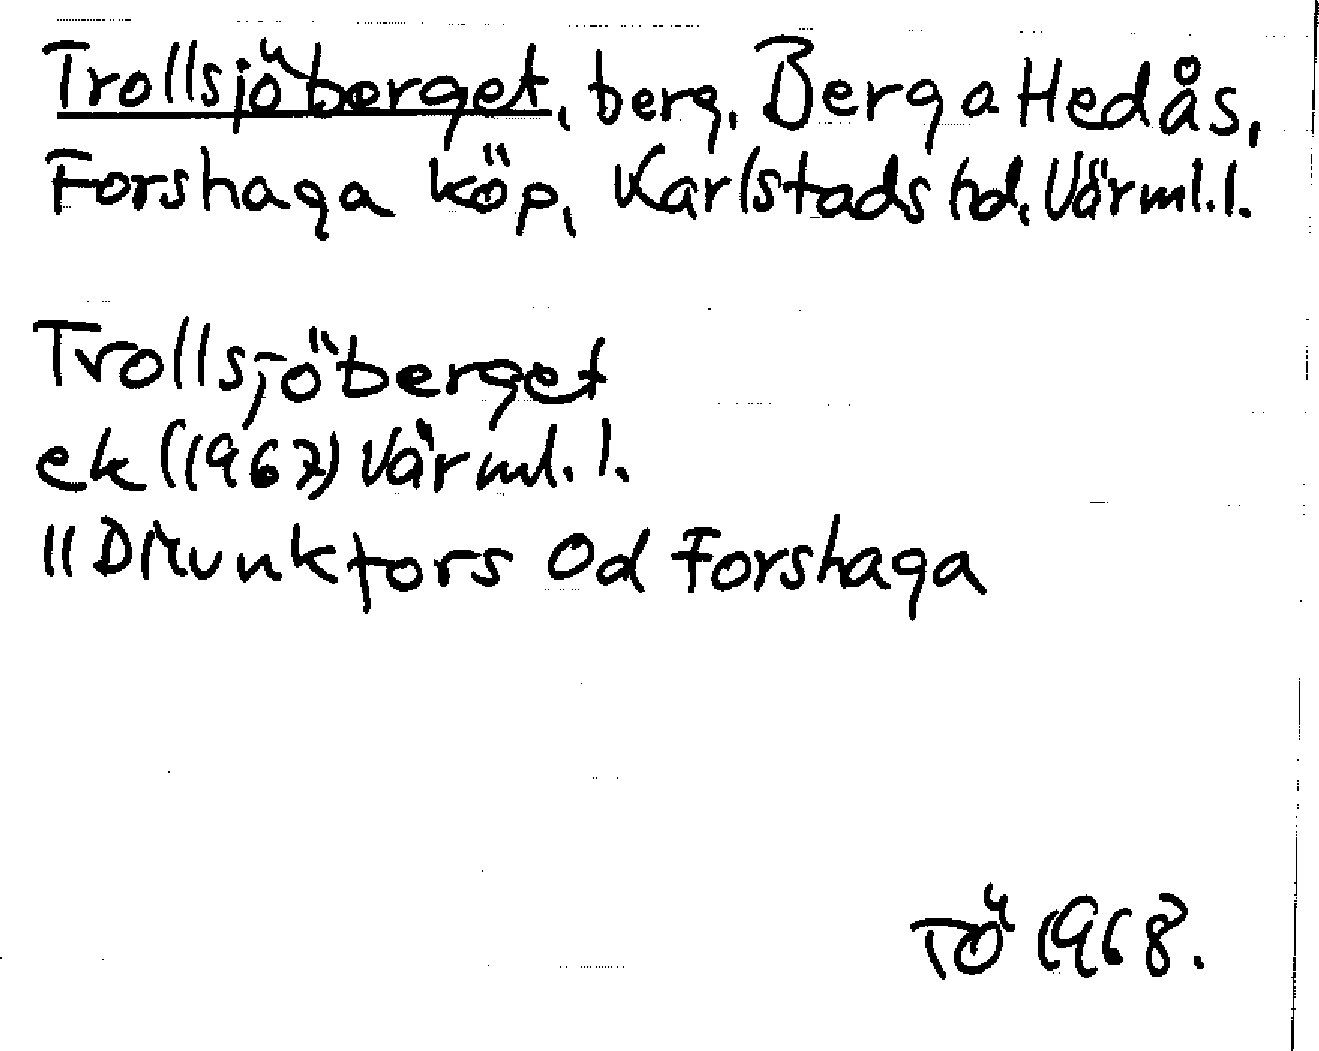 Trollsjöberget, berg, Berga Hedås,
Forshaga köp, Karlstads hd. Värml. l.
Trollsjöberget
ek (1967) Värml. l.
11D Munkfors Od Forshaga
TÖ 1968.